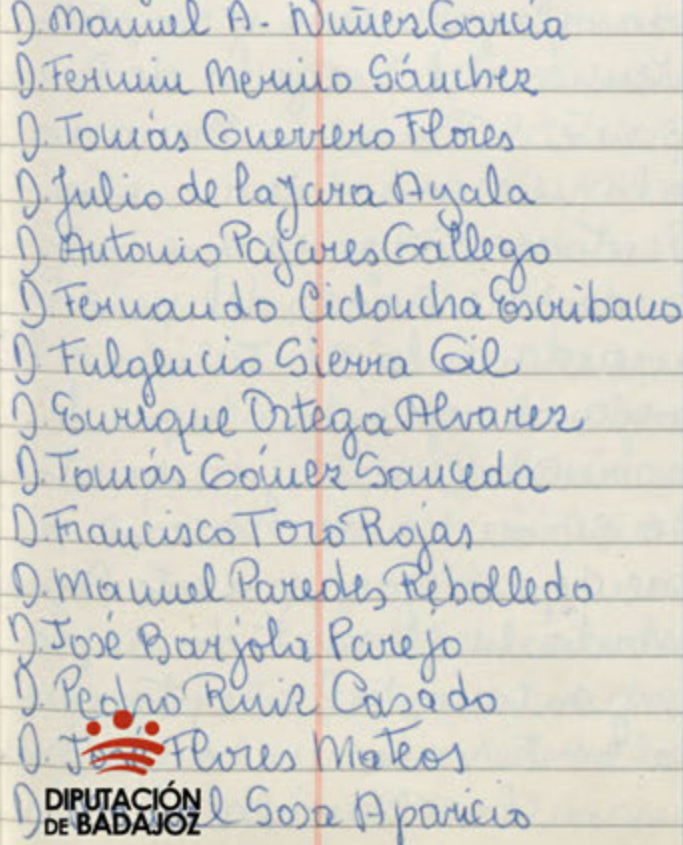 D. Manuel A. Nuñez García
D. Fermin Merino Sánchez
D. Tomás Guerrero Flores
D. Julio de la Jara Ayala
D. Antonio Pajares Gallego
D. Fernando Cidoncha Escribano
D. Fulgencio Sierra Gil
D. Enrique Ortega Alvarez
D. Tomás Gómez Sauceda
D. Francisco Toro Rojas
D. Manuel Paredes Rebolledo
D. José Barjola Parejo
D. Pedro Ruiz Casado
D. José Flores Mateos
D. Sosa Aparicio
DIPUTACIÓN
DE BADAJOZ